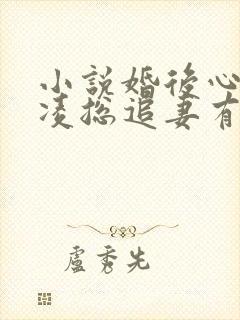 小說婚後心
凌總追妻有
盧秀先